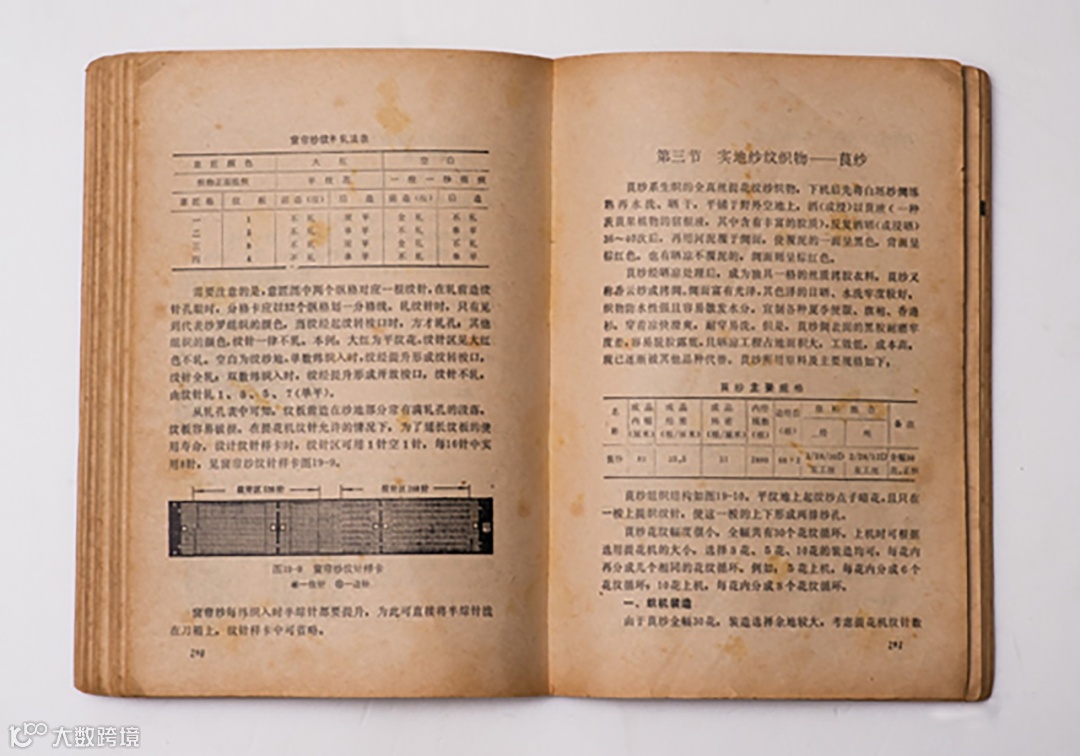 窗帘纱纹板轧法表
意匠颜色 大红 空白
织物正面组织 平纹花
意匠纹格 纹板 前造(纹) 后造 前造(纹) 后造
一 1 不轧 单平 全轧 不轧
二 2 不轧 单平 不轧 单平
三 3 不轧 单平 全轧 不轧
四 4 不轧 单平 不轧 单平
需要注意的是,意匠图中两个纵格对应一根纹针,在轧前造纹
针孔眼时,分格卡应以32个纵格划一分格线。轧纹针时,只有见
到代表纱罗组织的颜色,当绞经起绞转梭口时,方才轧孔,其他
组织的颜色,纹针一律不轧。本例,大红为平纹花,纹针区见大红
色不轧,空白为绞纱地,单数纬织入时,绞经提升形成绞转梭口,
纹针全轧;双数纬织入时,绞经提升形成开放梭口,纹针不轧,
由纹针轧1、3、5、7(单平)。
从轧孔表中可知,纹板前造在纱地部分常有满轧孔的段落,
纹板容易破损,在提花机纹针允许的情况下,为了延长纹板的使
用寿命,设计纹针样卡时,纹针区可用1针空1针,每16针中实
用8针,见窗帘纱纹针样卡图19-9。
图19-9 窗帘纱纹针样卡
窗帘纱每纬织入时半综针都要提升,为此可直接将半综针挂
在刀箱上,纹针样卡中可省略。
第三节 实地纱纹织物——莨纱
莨纱系生织的全真丝提花绞纱织物,下机后先将白坯纱绸练
熟再水洗、晒干,平铺于野外空地上,洒(或浸)以莨液(一种
茨莨果植物的宿根液,其中含有丰富的胶质),反复洒晒(或浸晒)
36~40次后,再用河泥覆于绸面,使覆泥的一面呈黑色,背面呈
棕红色,也有晒凉不覆泥的,绸面则呈棕红色。
莨纱经晒凉处理后,成为独具一格的丝质拷胶衣料。莨纱又
称香云纱或拷绸。绸面富有光泽,其色泽的日晒、水洗牢度较好,
织物防水性强且容易散发水分,宜制各种夏季便服、旗袍、香港
衫,穿着凉快滑爽,耐穿易洗。但是,莨纱绸表面的黑胶耐磨牢
度差,容易脱胶露底,且晒凉工程占地面积大,工效低,成本高,
现已逐渐被其他品种代替。莨纱所用原料及主要规格如下。
莨纱主要规格
莨纱组织结构如图19-10。平纹地上起绞纱点子暗花,且只在
一梭上提织纹针,使这一梭的上下形成两排纱孔。
莨纱花纹幅度很小,全幅共有30个花纹循环,上机时可根据
选用提花机的大小,选择3花、5花、10花的装造均可,每花内
再分成几个相同的花纹循环,例如,5花上机,每花内分成6个
花纹循环;10花上机,每花内分成3个花纹循环。
一、织机装造
由于莨纱全幅30花,装造选择余地较大,考虑提花机纹针数
大数跨境